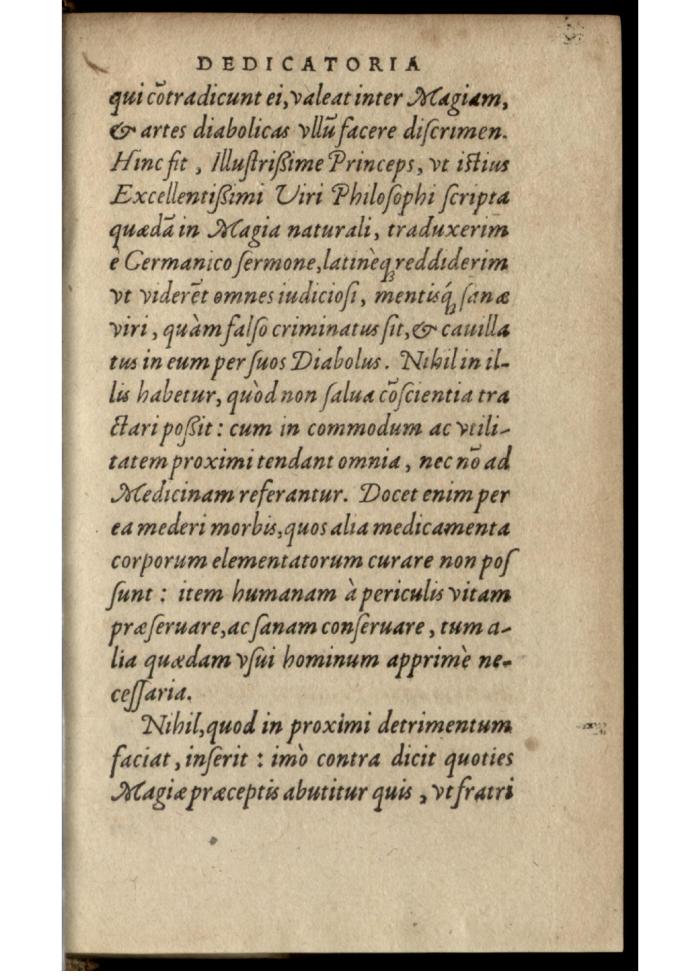 DEDICATORIA
qui cõtradicunt ei, valeat inter Magiam,
& artes diabolicas vllũ facere diſcrimen.
Hinc fit, Illuſtrißime Princeps, vt iſtius
Excellentißimi Viri Philoſophi ſcripta
quædã in Magia naturali, traduxerim
è Germanico ſermone, latinèqꝫ reddiderim
vt viderẽt omnes iudicioſi, mentisqꝫ́ ſanæ
viri, quàm falſo criminatus ſit, & cauilla
tus in eum per ſuos Diabolus. Nihil in il-
lis habetur, quòd non ſalua cõſcientia tra
ctari poßit: cum in commodum ac vtili-
tatem proximi tendant omnia, nec nõ ad
Medicinam referantur. Docet enim per
ea mederi morbis, quos alia medicamenta
corporum elementatorum curare non poſ
ſunt: item humanam à periculis vitam
præſeruare, ac ſanam conſeruare, tum a-
lia quædam vſui hominum apprimè ne-
ceſſaria.
Nihil, quod in proximi detrimentum
faciat, inſerit: imò contra dicit quoties
Magiæ præceptis abutitur quis, vt fratri